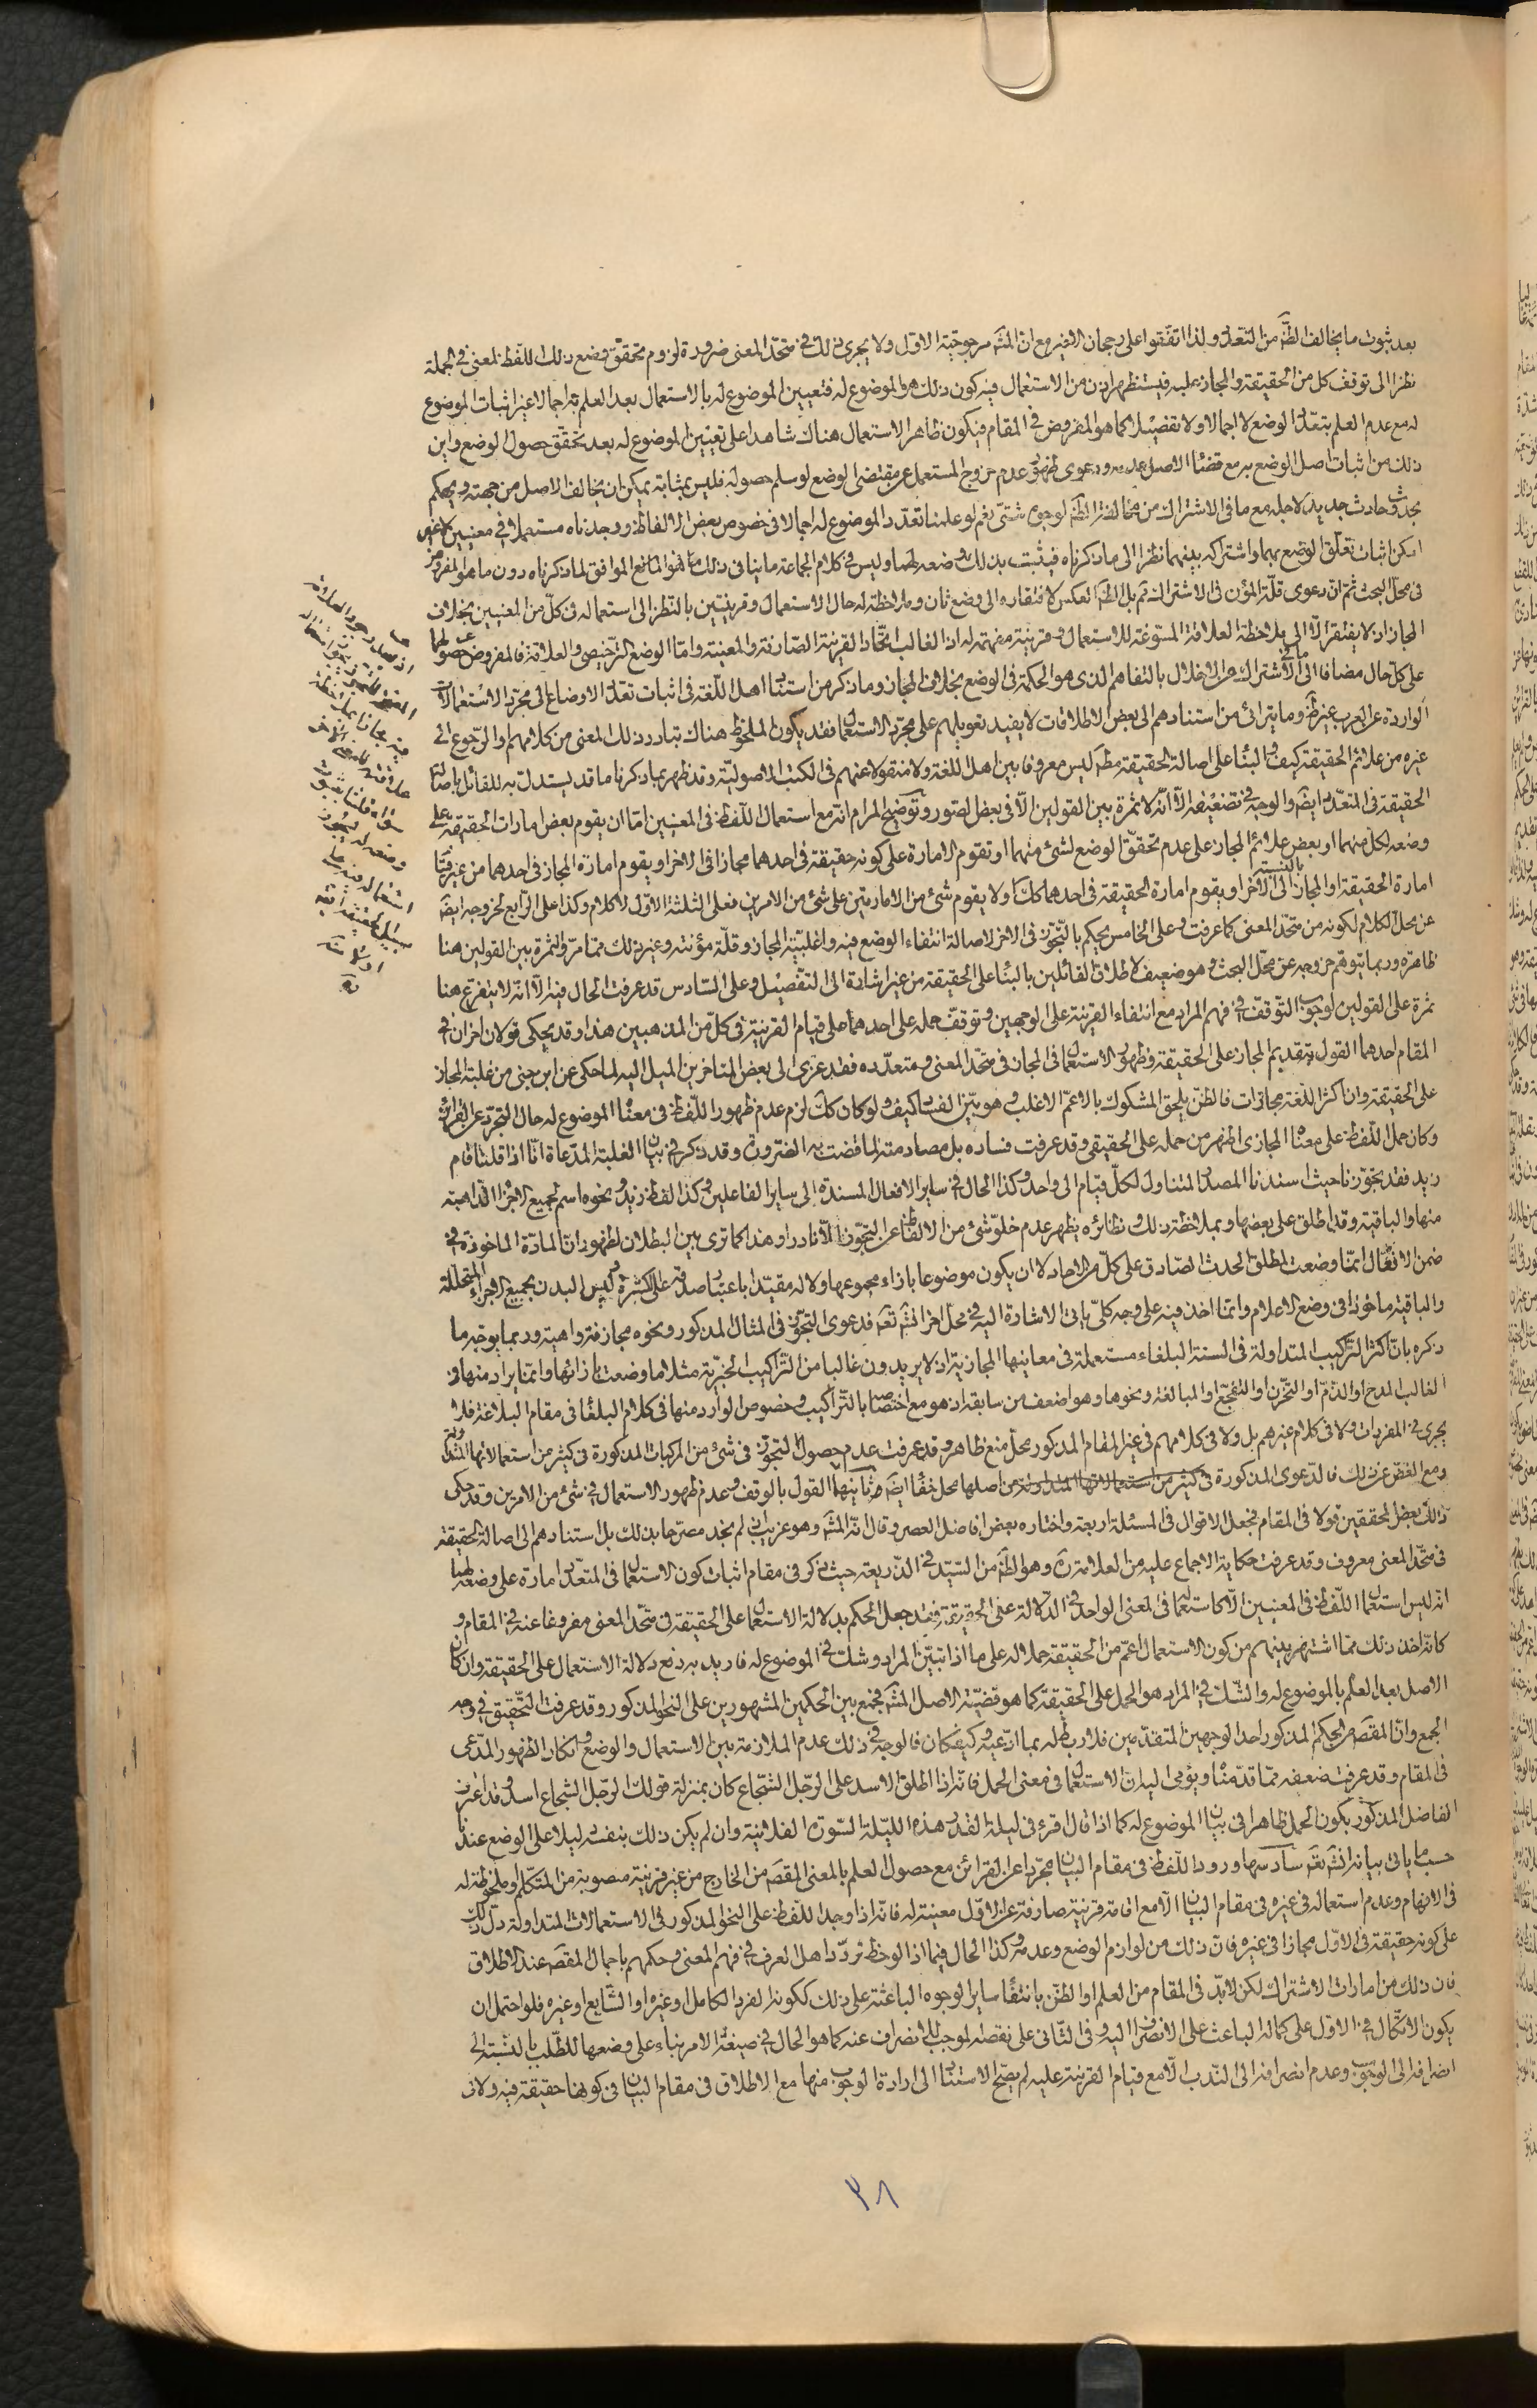 بعد ثبوت ما يخالف الظ من التعدد ولذا اتفقوا على رجحان الاخير مع ان المش مرجوحية الاول ولا يجرى ذلك فى متحد المعنى ضرورة لزوم تحقق وضع ذلك اللفظ لمعنى فى الجملة
نظرا الى توقف كل من الحقيقة والمجاز عليه فيستظهر اذن من الاستعمال فيه كون ذلك هو الموضوع له فتعيين الموضوع له بالاستعمال بعد العلم به اجمالا غير اثبات الموضوع
له مع عدم العلم بتعدد الوضع لا اجمالا ولا تفصيلا كما هو المفروض فى المقام فيكون ظاهر الاستعمال هناك شاهدا على تعيين الموضوع له بعد تحقق حصول الوضع واين
ذلك من اثبات اصل الوضع به مع قضاء الاصل بعدمه ودعوى ظهور عدم خروج المستعمل عن مقتضى الوضع لو سلم حصوله فليس بمثابة يمكن ان يخالف الاصل من جهته ويحكم
بحدوث حادث جديد لاجله مع ما فى الاشتراك من مخالفة الظ لوجوه شتى نعم لو علمنا تعدد الموضوع له اجمالا فى خصوص بعض الالفاظ ووجدناه مستعملا فى معنيين لا غير
امكن اثبات تعلق الوضع بهما واشتراكه بينهما نظرا الى ما ذكرناه فيثبت بذلك وضعه لهما وليس فى كلام الجماعة ما ينافى ذلك هذا هو المانع الموافق لما ذكرناه دون ما هو المفروض
فى محل البحث ثم ان دعوى قلة المؤن فى الاشتراك ثم بل الظ العكس لافتقاره الى وضع ثان وملاحظة له حال الاستعمال وقرينتين بالنظر الى استعماله فى كل من المعنيين بخلاف
المجاز اذ لا يفتقر الا الى ملاحظة العلاقة المسوغة للاستعمال وقرينة مفهمة له اذ الغالب اتحاد القرينة الصارفة والمعينة واما الوضع الترخيصى والعلاقة فالمفروض حصولهما
على كل حال مضافا الى ما فى الاشتراك من الاخلال بالتفاهم الذى هو الحكمة فى الوضع بخلاف المجاز وما ذكر من استناد اهل اللغة فى اثبات تعدد الاوضاع الى مجرد الاستعمالات
الواردة عن العرب غير ظ وما يترائى من استنادهم الى بعض الاطلاقات لا يفيد تعويلهم على مجرد الاستعمال فقد يكون الملحوظ هناك تبادر ذلك المعنى من كلامهم والرجوع الى
غيره من علائم الحقيقة كيف والبناء على اصالة الحقيقة مطلقا ليس معروفا بين اهل اللغة ولا منقولا عنهم فى الكتب الاصولية وقد ظهر بما ذكرنا ما قد يستدل به للقائل باصالة
الحقيقة فى المتعدد ايضا والوجه فى تضعيفه الا انه لا ثمرة بين القولين الا فى بعض الصور وتوضيح المرام انه مع استعمال اللفظ فى المعنيين اما ان يقوم بعض امارات الحقيقة على
وضعه لكل منهما او بعض علائم المجاز على عدم تحقق الوضع لشئ منهما او تقوم الامارة على كونه حقيقة فى احدهما مجازا فى الاخر او يقوم امارة المجاز فى احدهما من غير قيام
امارة الحقيقة او المجاز بالنسبة الى الآخر او يقوم امارة الحقيقة فى احدهما كك او لا يقوم شئ من الامارتين على شئ من الامرين فعلى الثلثة الاول لا كلام وكذا على الرابع لخروجه ايضا
عن محل الكلام لكونه من متحد المعنى كما عرفت وعلى الخامس يحكم بالتجوز فى الاخر لاصالة انتفاء الوضع فيه واغلبية المجاز وقلة مؤنته وغير ذلك مما مر والثمرة بين القولين هنا
ظاهرة وربما يتوهم خروجه عن محل البحث وهو ضعيف لاطلاق القائلين بالبناء على الحقيقة من غير اشارة الى التفصيل وعلى السادس قد عرفت الحال فيه الا انه لا يتفرع هنا
ثمرة على القولين لوجوب التوقف فى فهم المراد مع انتفاء القرينة على الوجهين وتوقف حمله على احدهما على قيام القرينة فى كل من المذهبين هذا وقد يحكى قولان اخران فى
المقام احدهما القول بتقديم المجاز على الحقيقة وظهور الاستعمال فى المجاز فى متحد المعنى ومتعدده فقد عزى الى بعض المتاخرين الميل اليه لما حكى عن ابن جنى من غلبة المجاز
على الحقيقة وان اكثر اللغة مجازات فالظن يلحق المشكوك بالاعم الاغلب وهو بين الفساد كيف ولو كان كك لزم عدم ظهور اللفظ فى معناه الموضوع له حال التجرد عن القرائن
وكان حمل اللفظ على معناه المجازى اظهر من حمله على الحقيقى وقد عرفت فساده بل مصادمته لما قضت به الضرورة وقد ذكر فى بيان الغلبة المدعاة انا اذا قلنا قام
زيد فقد تجوزنا حيث اسندنا المصدر المتناول لكل قيام الى واحد وكذا الحال فى ساير الافعال المسندة الى ساير الفاعلين وكذا لفظ زيد ونحوه اسم لجميع الاجزاء الذاهبة
منها والباقية وقد اطلق على بعضها وبملاحظة ذلك ونظائره يظهر عدم خلو شئ من الالفاظ عن التجوز الا نادرا وهذا كما ترى بين البطلان لظهور ان المادة الماخوذة فى
ضمن الافعال انما وضعت لمطلق الحدث الصادق على كل من الاحاد لا ان يكون موضوعا بازاء مجموعها ولا له مقيدا باعتبار صدقه على الكثرة وليس البدن بجميع الاجزاء المتحللة
والباقية ماخوذا فى وضع الاعلام وانما اخذ فيه على وجه كلى ياتى الاشارة اليه فى محل اخر انش تعه فدعوى التجوز فى المثال المذكور ونحوه مجازفة واهية وربما يوجه ما
ذكره بان اكثر التراكيب المتداولة فى السنة البلغاء مستعملة فى معانيها المجازية اذ لا يريدون غالبا من التراكيب الخبرية مثلا ما وضعت بازائها وانما يراد منها فى
الغالب المدح او الذم او التحزن او التفجع او المبالغة ونحوها وهو اضعف من سابقه اذ هو مع اختصاصه بالتراكيب وخصوص الوارد منها فى كلام البلغاء فى مقام البلاغة فلا
يجرى فى المفردات ولا فى كلام غيرهم بل ولا فى كلامهم فى غير المقام المذكور محل منع ظاهر وقد عرفت عدم حصول التجوز فى شئ من المركبات المذكورة فى كثير من استعمالاتها المتداولة
ومع الغض عن ذلك فالدعوى المذكورة فى كثير من استعمالاتها المتداولة من اصلها محل خفاء ايضا ثانيهما القول بالوقف وعدم ظهور الاستعمال فى شئ من الامرين وقد حكى
ذلك بعض المحققين قولا فى المقام فجعل الاقوال فى المسئلة اربعة واختاره بعض افاضل العصر وقال انه المش وهو غريب اذ لم نجد مصرحا بذلك بل استنادهم الى اصالة الحقيقة
فى متحد المعنى معروف وقد عرفت حكاية الاجماع عليه من العلامة ره وهو الظ من السيد فى الذريعة حيث ذكر فى مقام اثبات كون الاستعمال فى المتعدد امارة على وضعه لهما
انه ليس استعمال اللفظ فى المعنيين الا كاستعماله فى المعنى الواحد فى الدلالة على الحقيقة فقد جعل الحكم بدلالة الاستعمال على الحقيقة فى متحد المعنى مفروغا عنه فى المقام و
كانه اخذ ذلك مما اشتهر بينهم من كون الاستعمال اعم من الحقيقة حملا له على ما اذا تبين المراد وشك فى الموضوع له فاريد به دفع دلالة الاستعمال على الحقيقة وان كان
الاصل بعد العلم بالموضوع له والشك فى المراد هو الحمل على الحقيقة كما هو قضية الاصل المش فجمع بين الحكمين المشهورين على النحو المذكور وقد عرفت التحقيق فى وجه
الجمع وان المقصود من الحكم المذكور احد الوجهين المتقدمين فلا ربط له بما ادعيه وكيف كان فالوجه فى ذلك عدم الملازمة بين الاستعمال والوضع وانكار الظهور المدعى
فى المقام وقد عرفت ضعفه مما قدمناه ويؤمى اليه ان الاستعمال فى معنى الحمل فانه اذا اطلق الاسد على الرجل الشجاع كان بمنزلة قولك الرجل الشجاع اسد وقد اعترف
الفاضل المذكور بكون الحمل ظاهرا فى بيان الموضوع له كما اذا قال اقرء فى ليلة القدر هذه الليلة السورة الفلانية وان لم يكن ذلك بنفسه دليلا على الوضع عندنا
حسب ما ياتى بيانه انش تعه سادسها ورود اللفظ فى مقام البيان مجردا عن القرائن مع حصول العلم بالمعنى المقصود من الخارج من غير قرينة منصوبة من المتكلم وملحوظة له
فى الافهام وعدم استعماله فى غيره فى مقام البيان الا مع اقامة قرينة صارفة عن الاول معينة له فانه اذا وجد اللفظ على النحو المذكور فى الاستعمالات المتداولة دل ذلك
على كونه حقيقة فى الاول مجازا فى غيره فان ذلك من لوازم الوضع وعدمه وكذا الحال فيما اذا لوحظ تردد اهل العرف فى فهم المعنى وحكمهم باجمال المقصود عند الاطلاق
فان ذلك من امارات الاشتراك لكن لابد فى المقام من العلم او الظن بانتفاء ساير الوجوه الباعثة على ذلك ككونه الفرد الكامل او غيره او الشايع او غيره فلو احتمل ان
يكون الاتكال فى الاول على كماله الباعث على الانصراف اليه وفى الثانى على نقصه الموجب للانصراف عنه كما هو الحال فى صيغة الامر بناء على وضعها للطلب بالنسبة الى
انصرافه الى الوجوب وعدم انصرافه الى الندب الا مع قيام القرينة عليه لم يصح الاستناد الى ارادة الوجوب منها مع الاطلاق فى مقام البيان فى كونها حقيقة فيه ولا فى
٣٨